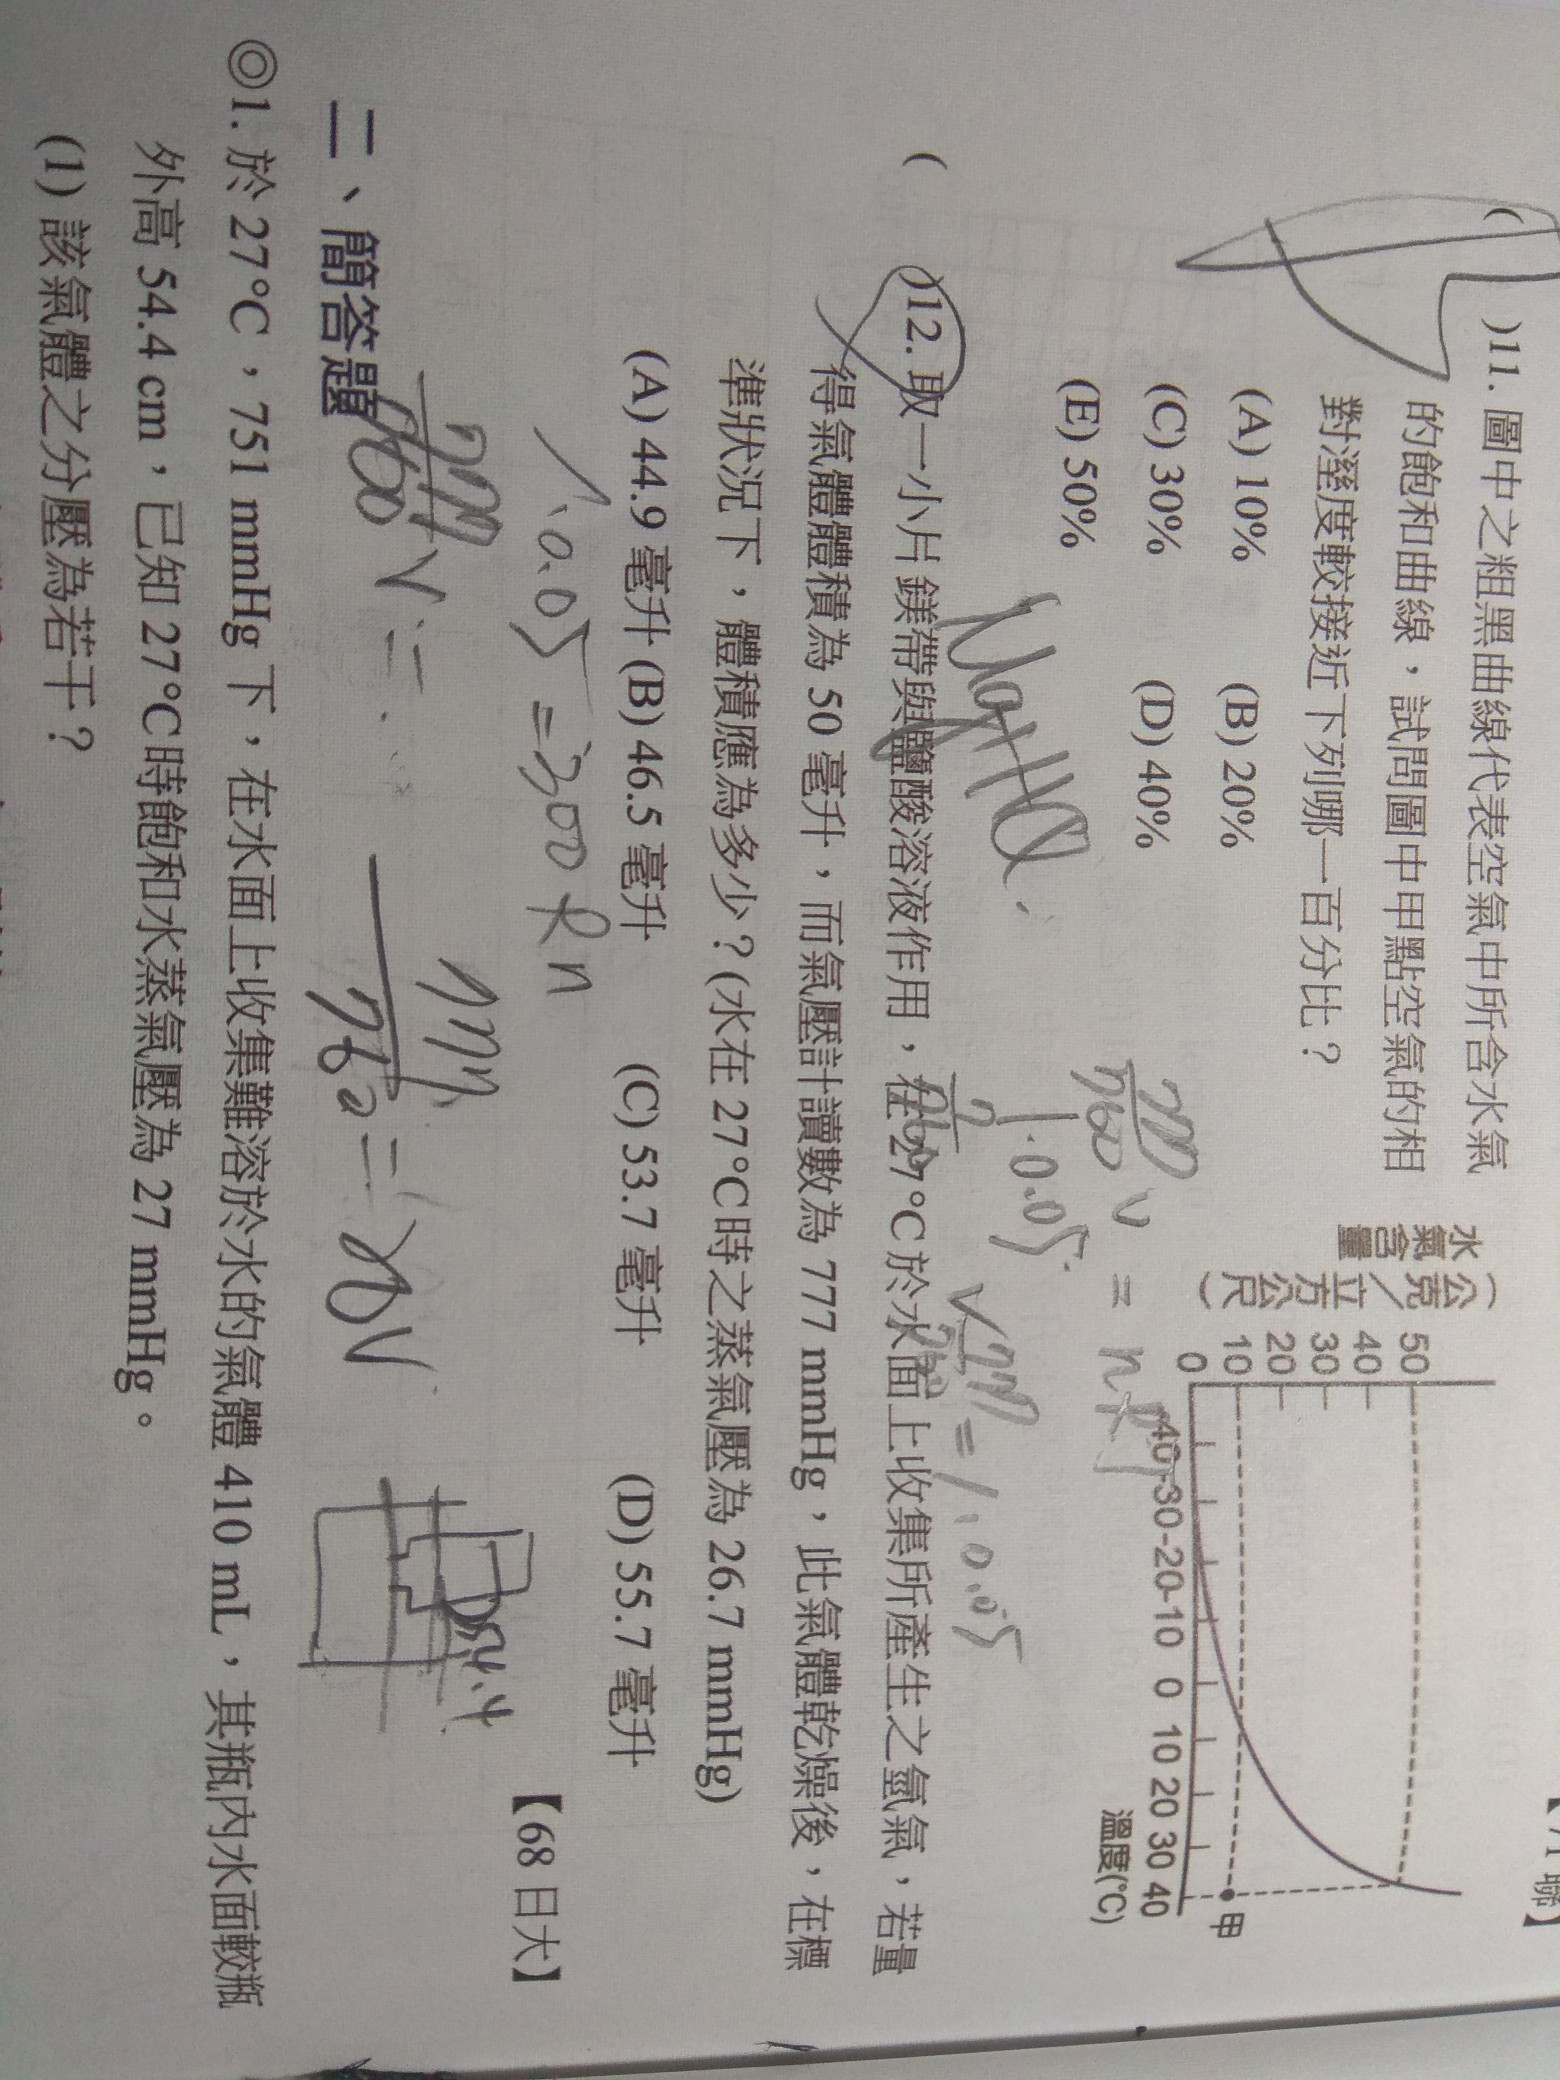 【71 聯】
( )11. 圖中之粗黑曲線代表空氣中所含水氣
的飽和曲線，試問圖中甲點空氣的相
對溼度較接近下列哪一百分比？
(A) 10% (B) 20%
(C) 30% (D) 40%
(E) 50%
水氣含量
（公克／立方公尺）
50
40
30
20
10
0
-40 -30 -20 -10 0 10 20 30 40
溫度(°C)
甲
777/760 V = nRT
Mg+HCl
1·0.05
V 777 = 1.0.05
( )12. 取一小片鎂帶與鹽酸溶液作用，在 27°C 於水面上收集所產生之氫氣，若量
得氣體體積為 50 毫升，而氣壓計讀數為 777 mmHg，此氣體乾燥後，在標
準狀況下，體積應為多少？(水在 27°C時之蒸氣壓為 26.7 mmHg)
(A) 44.9 毫升 (B) 46.5 毫升 (C) 53.7 毫升 (D) 55.7 毫升
【68 日大】
1.0.05 = 300 R n
777/760 V =
777/760 =
54.4
二、簡答題
◎1. 於 27°C，751 mmHg 下，在水面上收集難溶於水的氣體 410 mL，其瓶內水面較瓶
外高 54.4 cm，已知 27°C時飽和水蒸氣壓為 27 mmHg。
(1) 該氣體之分壓為若干？